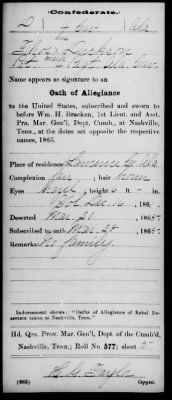 Confederate.
D Cav Ala
his
Jackson
mark
Name appears as signature to an
Oath of Allegiance
to the United States, subscribed and sworn to
before Wm. H. Bracken, 1st Lieut. and Asst.
Pro. Mar. Gen'l, Dept. Cumb., at Nashville,
Tenn., at the dates set opposite the respective
names, 1865.
Place of residence Lawrence Co Ala
Complexion fair ; hair brown
Eyes ; height 6 ft. - in.
Vol Dec 16 , 186
Deserted Mar. 21 , 1865.
Subscribed to oath Mar. 28 , 1865.
Remarks: No family.
Indorsement shows: "Oaths of Allegiance of Rebel Deserters taken at Nashville, Tenn."
Hd. Qrs. Provr. Mar. Gen'l, Dept. of the Cumb'd,
Nashville, Tenn.; Roll No. 577; sheet 2
Taylor
(665) Copyist.